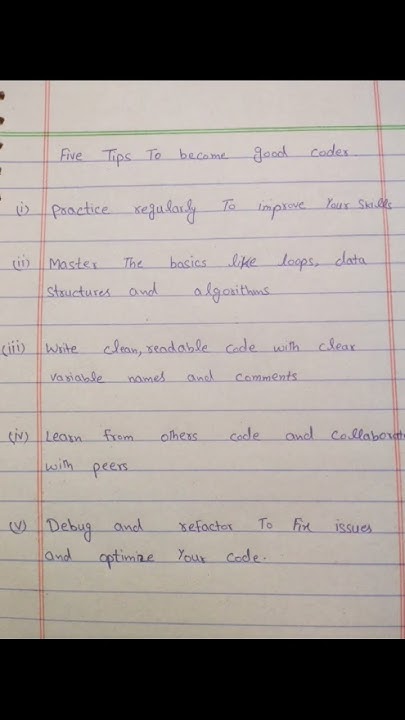 Five Tips To become good coder.
(i) practice regularly To improve Your Skills
(ii) Master The basics like loops, data
structures and algorithms
(iii) Write clean, readable code with clear
variable names and comments
(iv) Learn from others code and collaborate
with peers
(v) Debug and refactor To Fix issues
and optimize Your code.